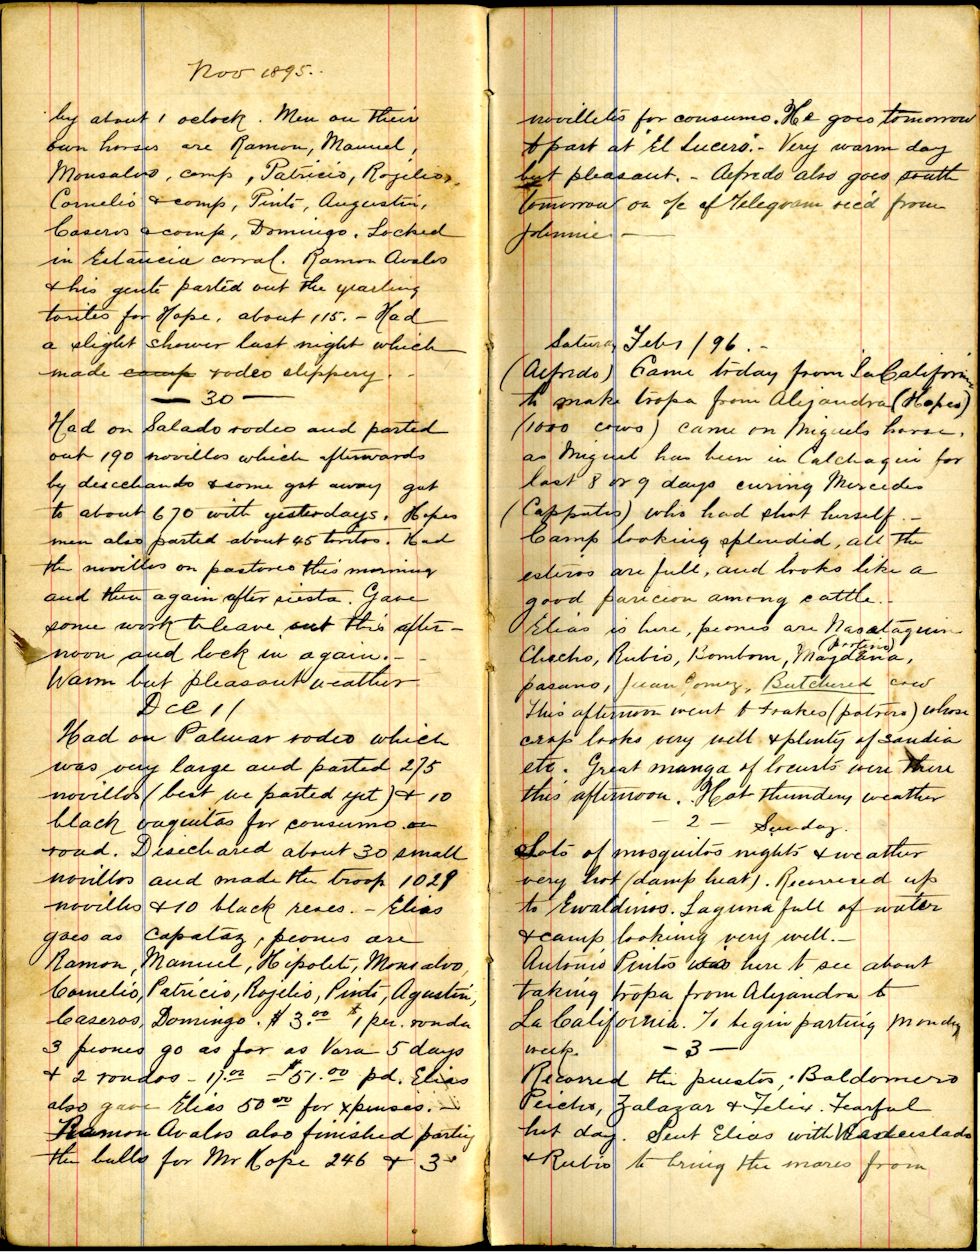 Nov 1895.
by about 1 oclock. Men on their
own horses are Ramon, Manuel,
Monsalvo, comp, Patricio, Rojelio,
Cornelio & comp, Pinto, Augustin,
Caseros & comp, Domingo. Locked
in Estancia corral. Ramon Avalos
& his gente parted out the yearling
toritos for Hope, about 115. - Had
a slight shower last night which
made camp rodeo slippery. -
— 30 —
Had on Salado rodeo and parted
out 190 novillos which afterwards
by desechando & some got away got
to about 670 with yesterdays. Hopes
men also parted about 45 toritos. Had
the novillos on pastoreo this morning
and then again after siesta. Gave
some work to leave out this after-
noon and lock in again. -
Warm but pleasant weather
Dec 1/
Had on Palmar rodeo which
was very large and parted 275
novillos (best we parted yet) & 10
black vaquitas for consumo on
road. Disechared about 30 small
novillos and made the troop 1029
novillos & 10 black reses. - Elias
goes as capataz, peones are
Ramon, Manuel, Hipolito, Monsalvo,
Cornelio, Patricio, Rojelio, Pinto, Agustin,
Caseros, Domingo. $3.00 $1 per ronda
3 peones go as far as Vara 5 days
& 2 rondos - 17.00 = $51.00 pd. Elias
also gave Elias 50.00 for xpenses. -
Ramon Avalos also finished parting
the bulls for Mr Hope 246 & 3
novilletes for consumo. He goes tomorrow
to part at "El Lucero". - Very warm day
but pleasant. - Alfredo also goes south
tomorrow on a/c of telegram rec'd from
Johnnie. —
Saturday Feb 1/96. -
(Alfredo) Came today from La California
to make tropa from Alejandra (Hopes)
(1000 cows) came on Miguels horse.
as Miguel has been in Calchaqui for
last 8 or 9 days curing Mercedes
who had shot herself. -
Camp looking splendid, all the
esteros are full, and looks like a
good paricion among cattle. -
Elias is here, peones are
Chicho, Rubio, Bombom, Magdana,
pasano, Juan Gomez, Butchered cow
This afternoon went to (potrero) whose
crop looks very well & plenty of sandia
etc. Great manga of locusts were there
this afternoon. Hot thundery weather
- 2 - Sunday.
Lots of mosquitos nights & weather
very hot (damp heat). Recorrered up
to Ewaldinos. Laguna full of water
& camp looking very well. -
Antonio Pinto was here to see about
taking tropa from Alejandra to
La California. To begin parting Monday
week. - 3 -
Recorred the puestos; Baldomero
Peicho, Zalazar & Felix. Fearful
hot day. Sent Elias with Wenseslado
& Rubio to bring the mares from